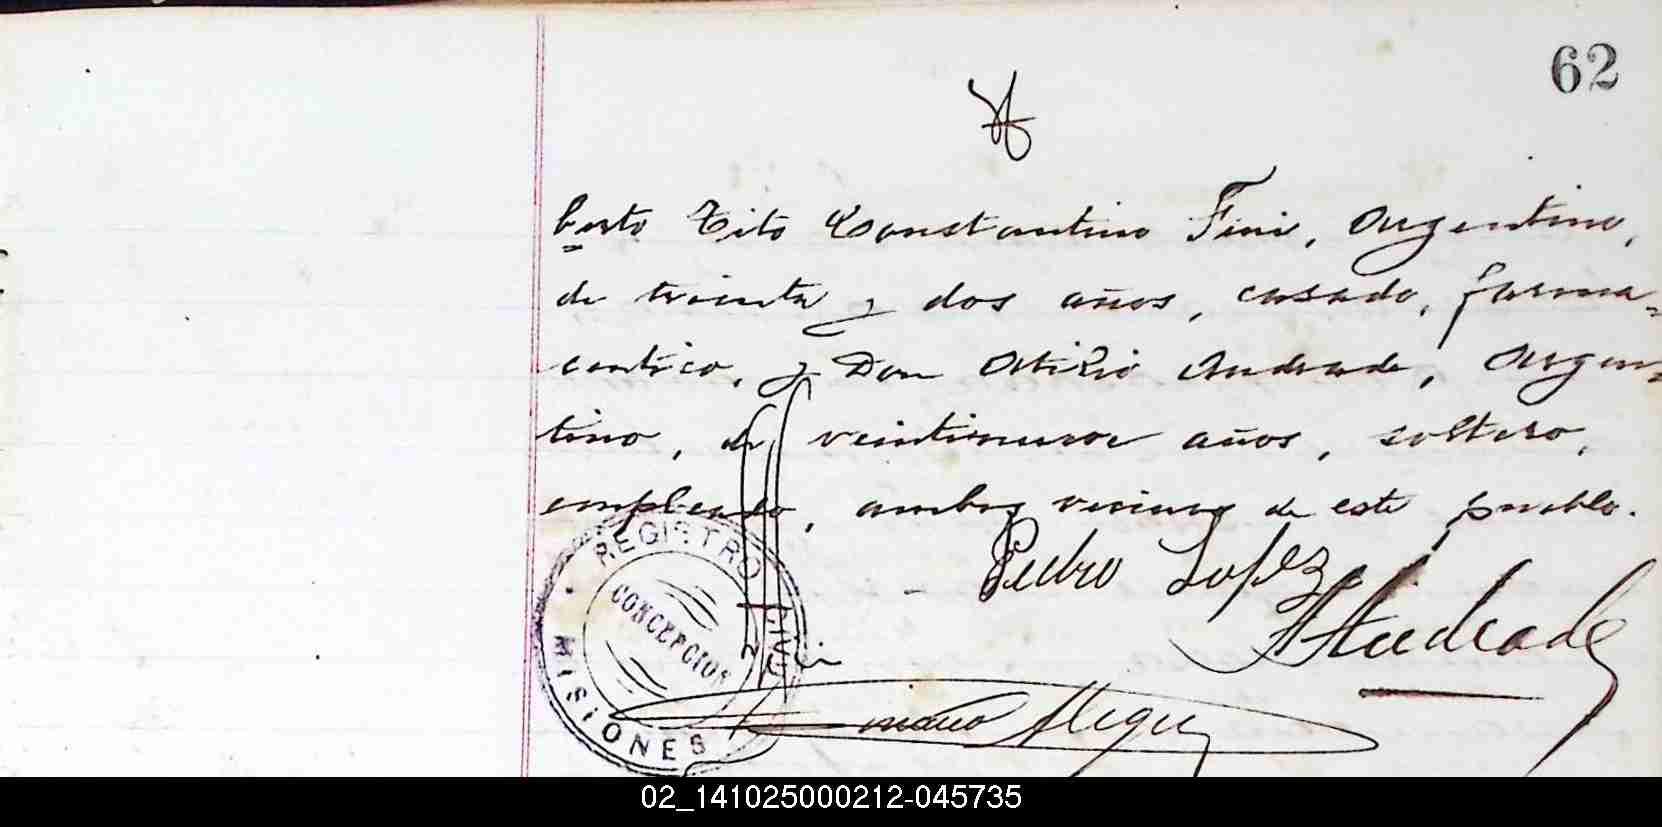 62
berto Tito Constantino Fini, Argentino,
de treinta y dos años, casado, farma-
ceutico, y Don Atilio Andrade, Argen-
tino, de veintinueve años, soltero,
empleado, ambos vecinos de este pueblo.
Pedro Lopez
A Andrade
REGISTRO CIVIL
CONCEPCION
MISIONES
Alegre
02_141025000212-045735